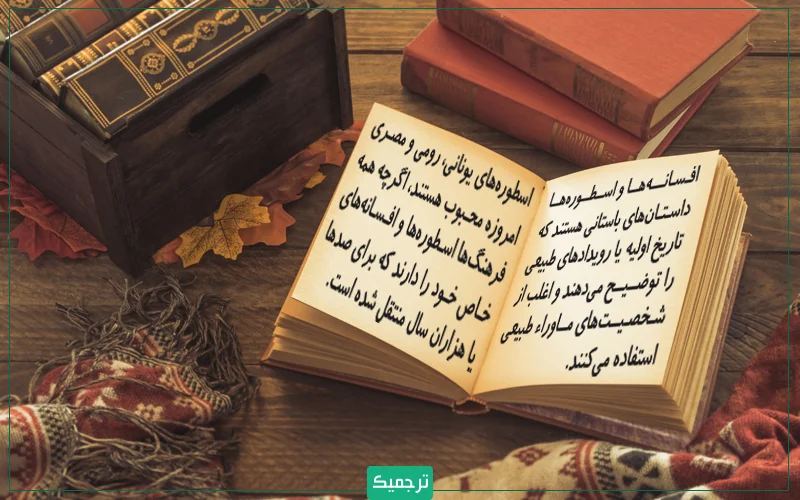 افسانه‌ها و اسطوره‌ها
داستان‌های باستانی هستند که
تاریخ اولیه یا رویدادهای طبیعی
را توضیح می‌دهند و اغلب از
شخصیت‌های ماوراء طبیعی
استفاده می‌کنند.
اسطوره‌های یونانی، رومی و مصری
امروزه محبوب هستند، اگرچه همه
فرهنگ‌ها اسطوره‌ها و افسانه‌های
خاص خود را دارند که برای صدها
یا هزاران سال منتقل شده است.
ترجمیک